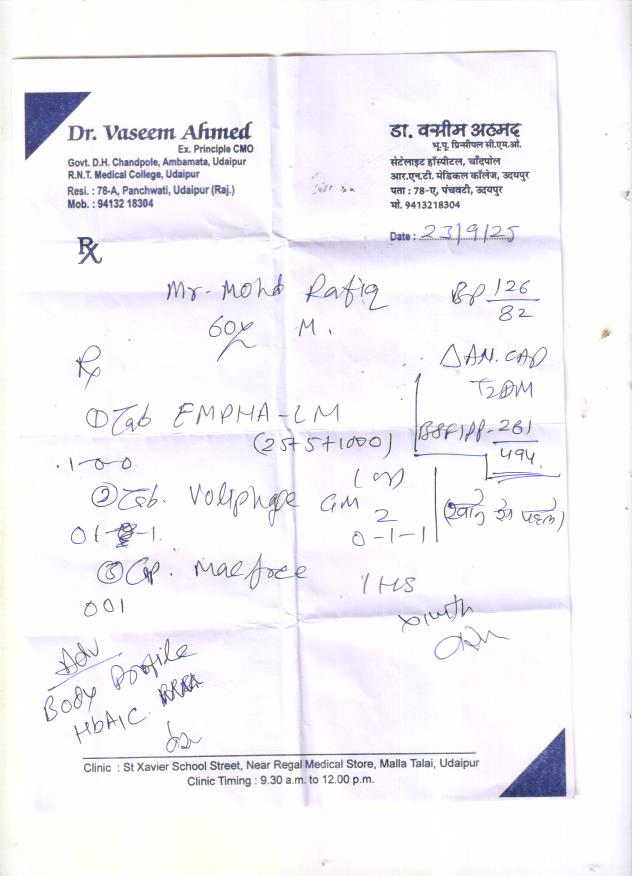 Dr. Vaseem Ahmed
Ex. Principle CMO
Govt. D.H. Chandpole, Ambamata, Udaipur
R.N.T. Medical College, Udaipur
Resi. : 78-A, Panchwati, Udaipur (Raj.)
Mob. : 94132 18304
डा. वसीम अहमद
भू.पू. प्रिन्सीपल सी.एम.ओ.
सेटेलाइट हॉस्पीटल, चाँदपोल
आर.एन.टी. मेडिकल कॉलेज, उदयपुर
पता : 78-ए, पंचवटी, उदयपुर
मो. 9413218304
Date : 23/9/25
Rx
Mr. Mohd Rafiq
60y M.
BP 126/82
Rx
T2DM
① Tab EMPHA-LM
(25+5+1000)
261/494
1-0-0
② Tab. Voliphage GM 2
0-1-1
(खाने से पहले)
③ Cap. Maxfree 1 HS
001
Adv
Body Profile
HbA1C
Clinic : St Xavier School Street, Near Regal Medical Store, Malla Talai, Udaipur
Clinic Timing : 9.30 a.m. to 12.00 p.m.